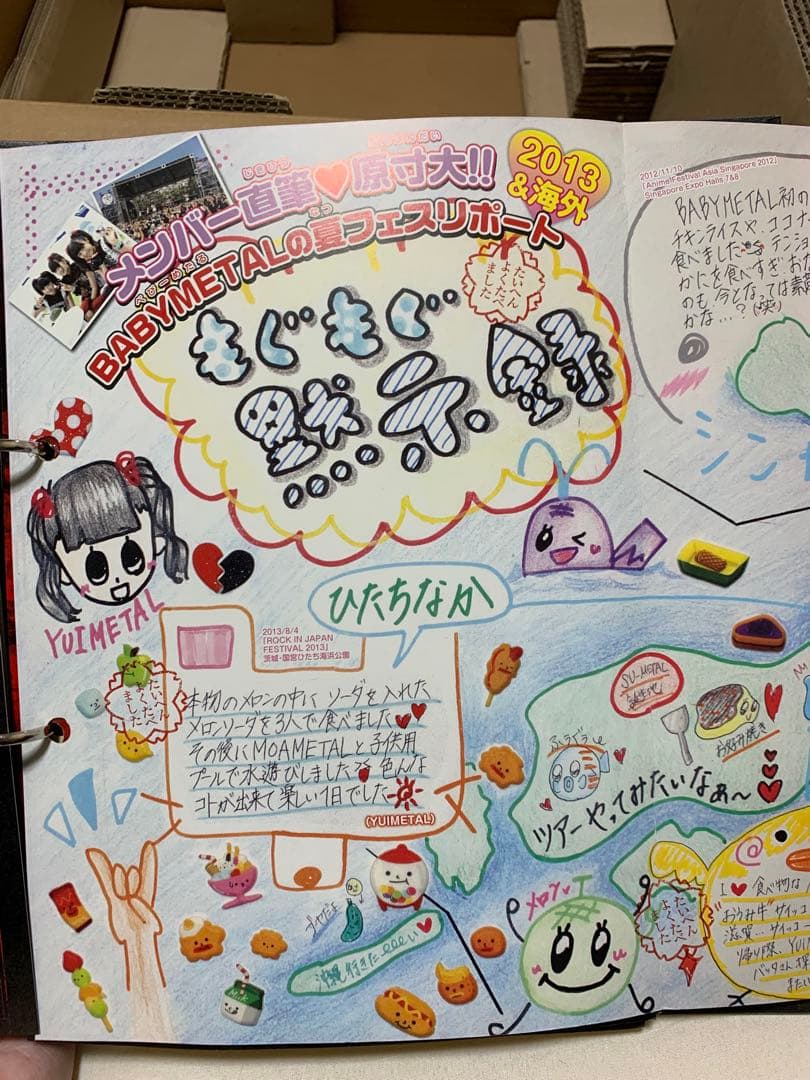 メンバー直筆♥原寸大!!
2013
&海外
BABYMETALの夏フェスリポート
べびーめたる
なつ
たいへん
よくたべ
ました
もぐもぐ
黙示録
2012/11/10
「Anime Festival Asia Singapore 2012」
Singapore Expo Halls 7&8
BABYMETAL初の
チキンライスや、ココナ
食べました
かにを食べすぎ
のも 今となっては素
かな…?(笑)
シンガ
YUIMETAL
ひたちなか
2013/8/4
「ROCK IN JAPAN
FESTIVAL 2013」
茨城・国営ひたち海浜公園
本物のメロンの中に ソーダを入れた
メロンソーダを3人で食べました♥♥
その後にMOAMETALと子供用
プールで水遊びしました 色んな
コトが出来て楽しい1日でした
(YUIMETAL)
たいへん
よくたべ
ました
SU-METAL
お好み焼き
ツアーやってみたいなぁ〜
メロン
沖縄行きたぁぁぁい♥
Milk
たいへん
よくたべ
ました
I ♥ 食べ物な
"おうみ牛"サイッコ
滋賀…サイッコー
帰り際、YUI
バッタさん
またい